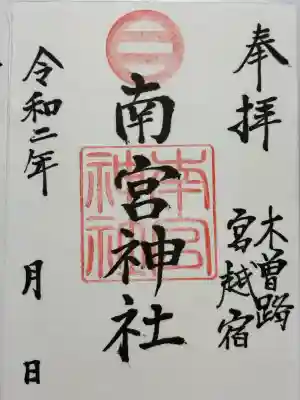 奉拝
木曽路
宮越宿
南宮神社
南宮
神社
令和二年
月
日